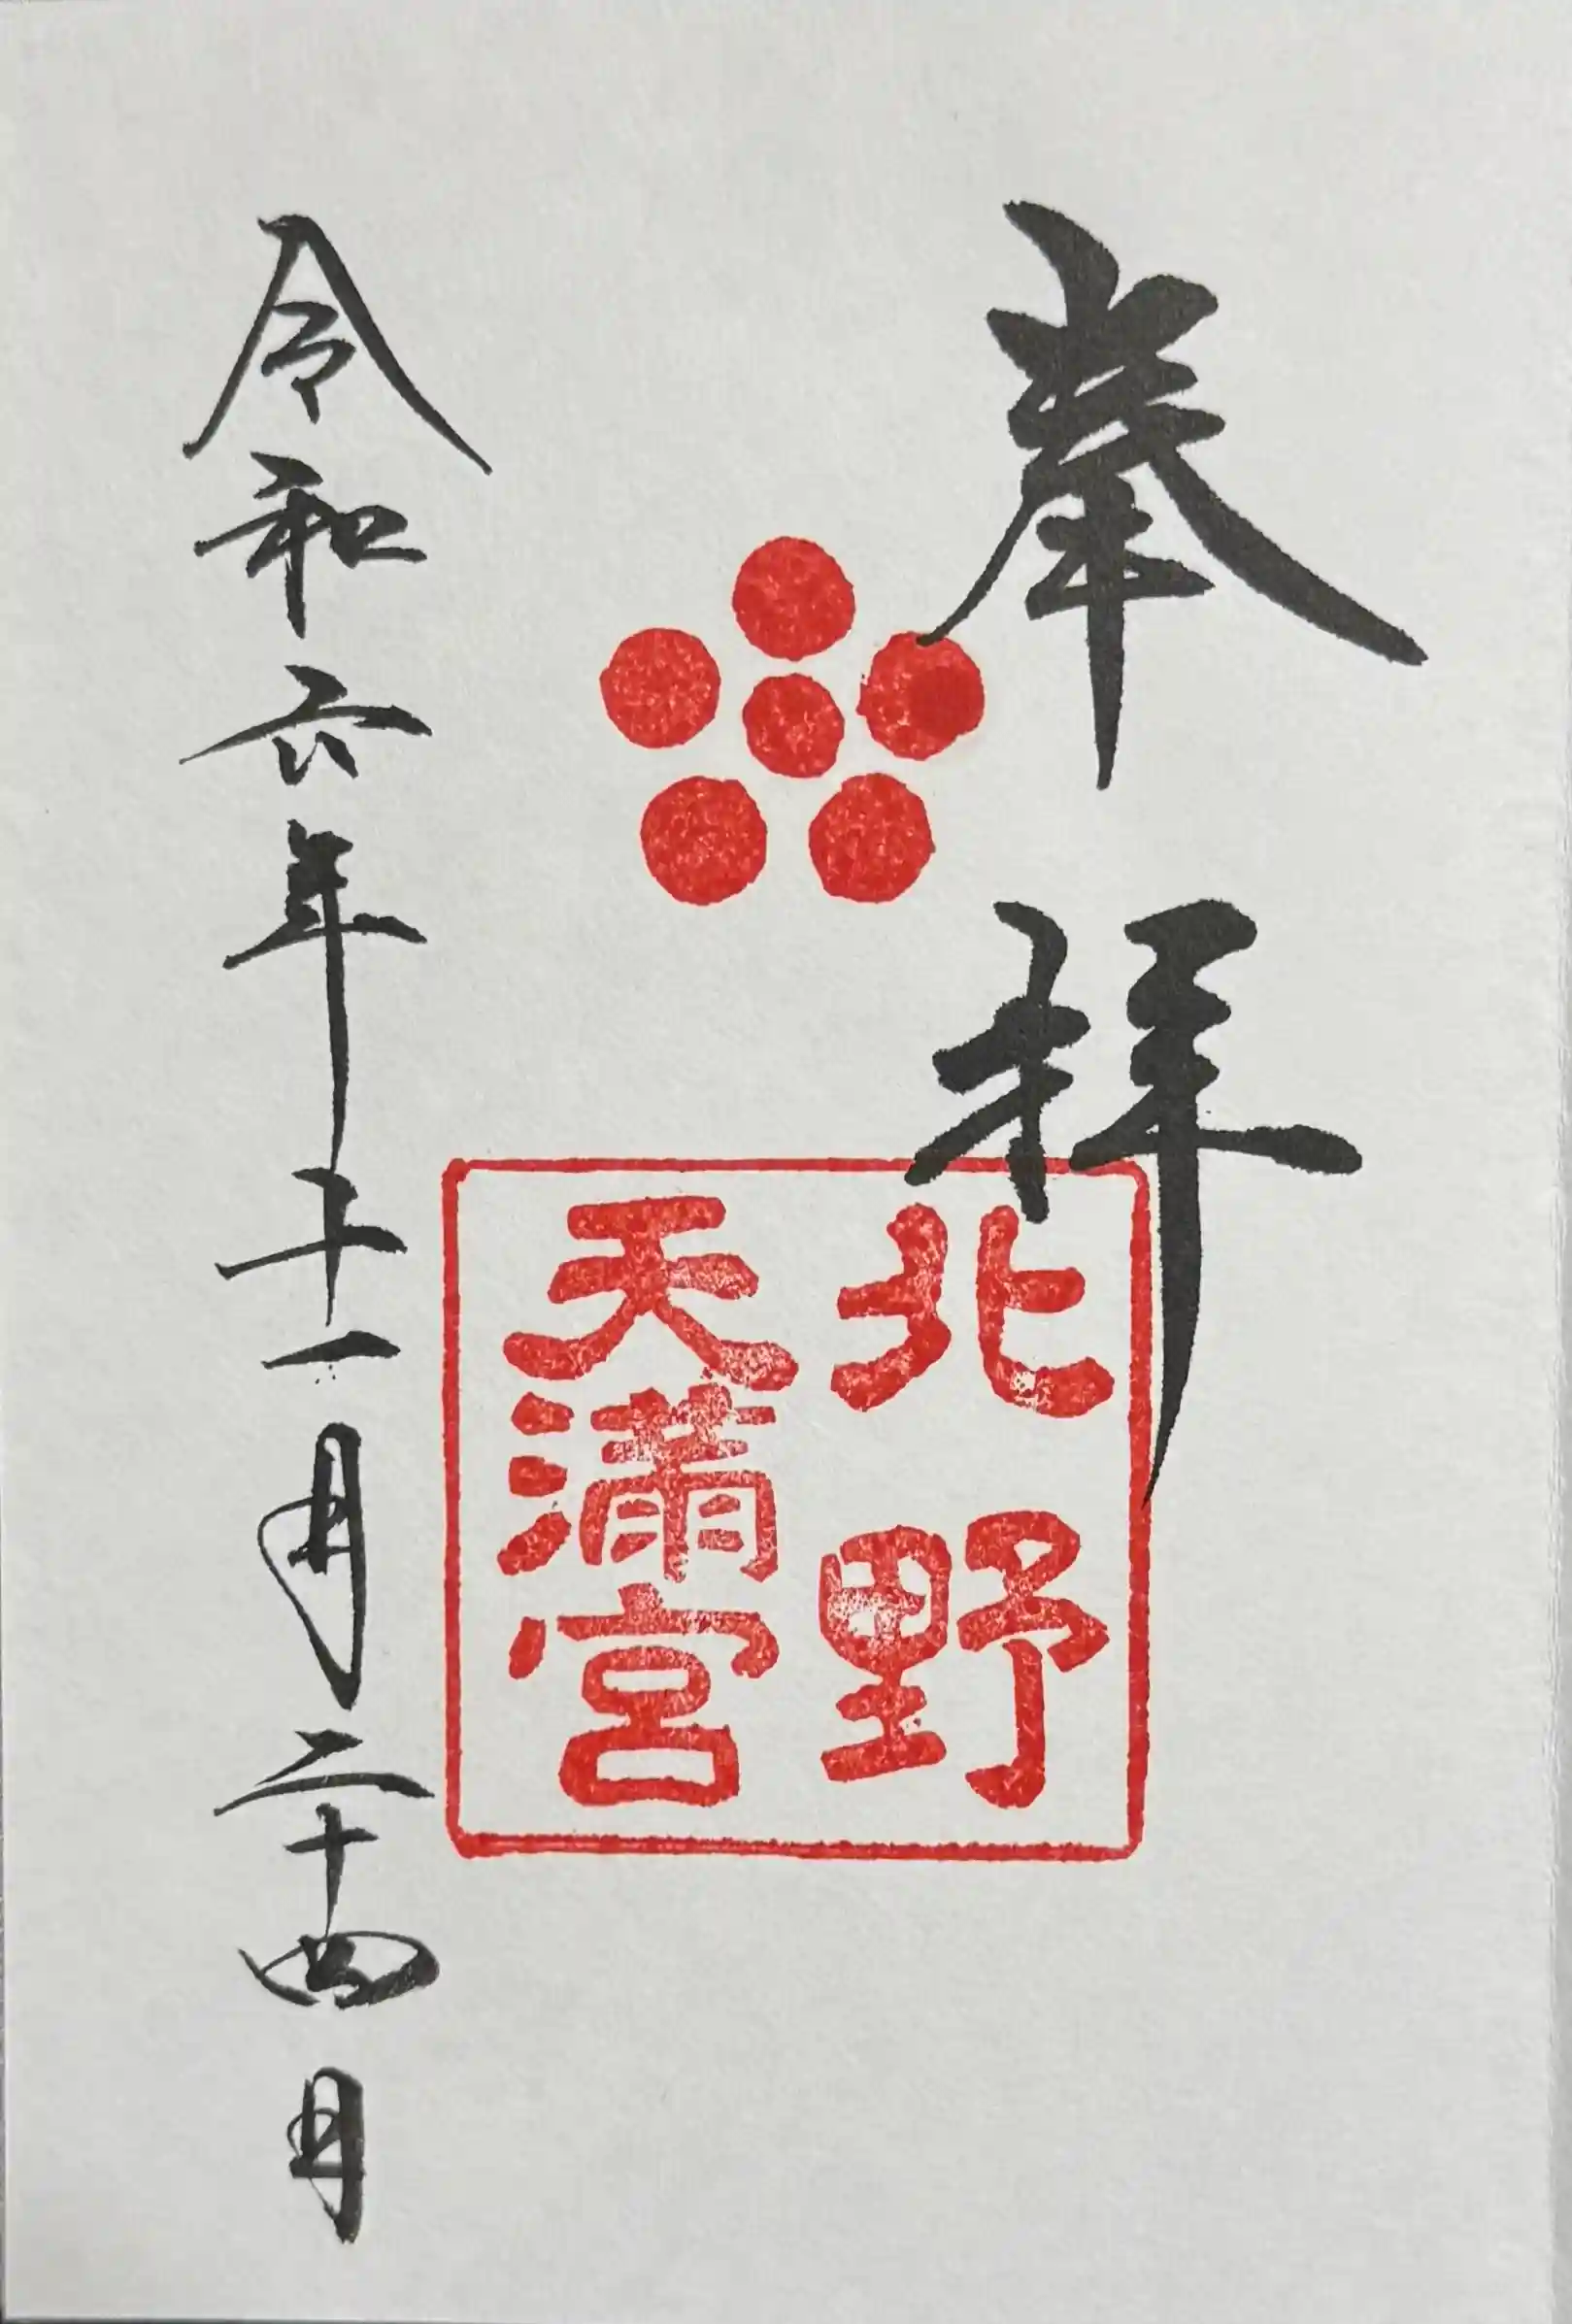 奉拝
北野
天満宮
令和六年十一月二十四日